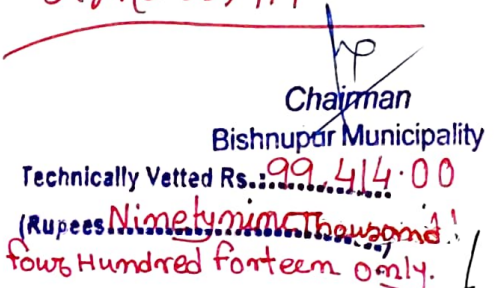 Chairman
Bishnupur Municipality
Technically Vetted Rs.:99,414.00
(Rupees Ninetynine Thousand
four Hundred forteen only.